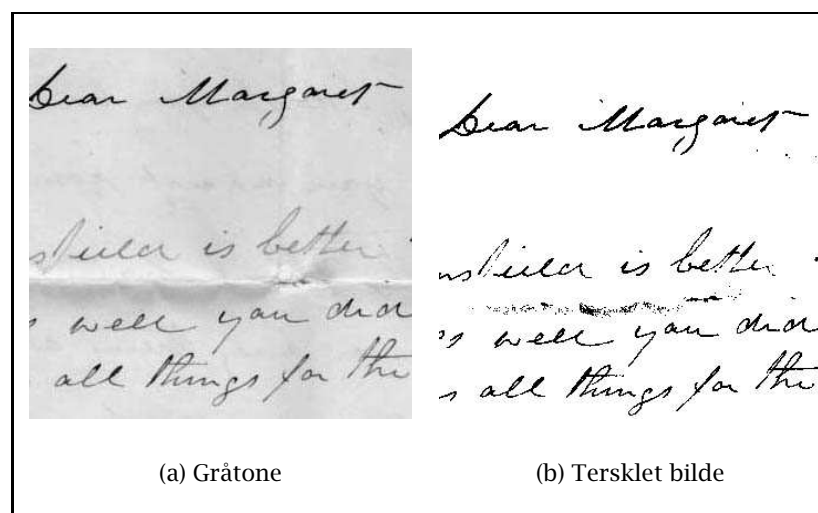 Dear Margaret
is better
well you did
all things for the
(a) Gråtone
Dear Margaret
is better
well you did
all things for the
(b) Tersklet bilde